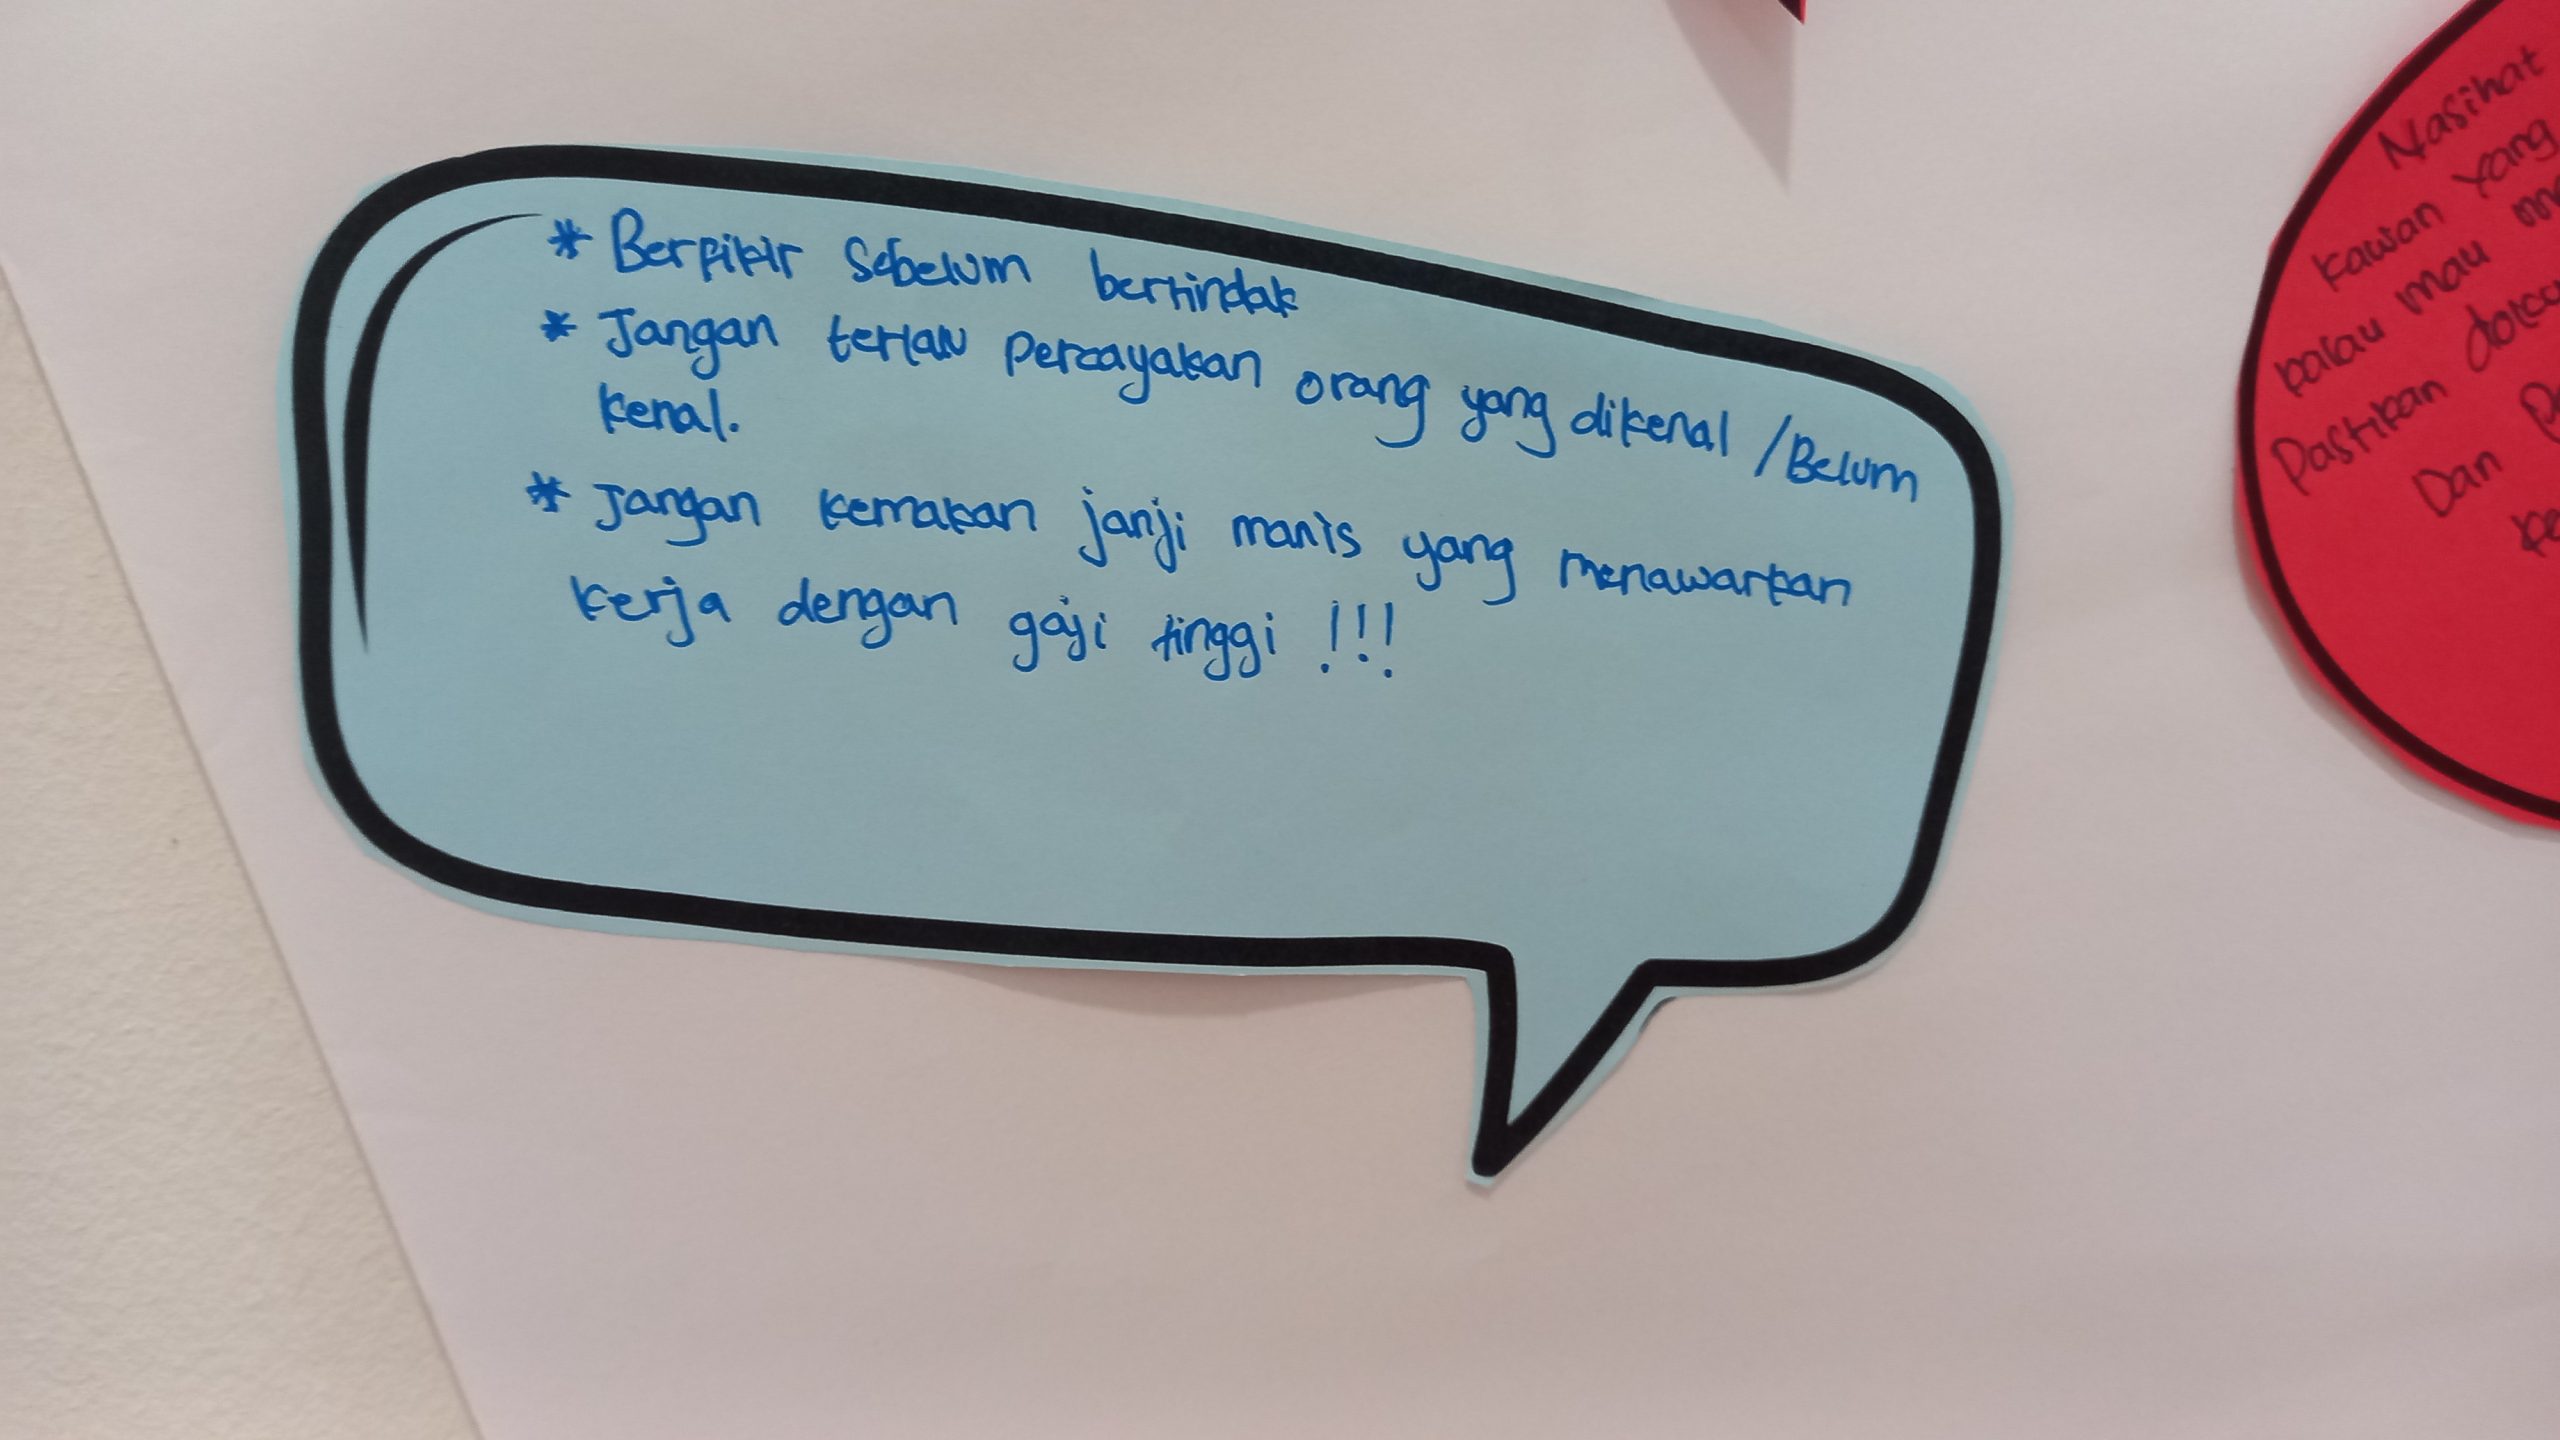 * Berpikir sebelum bertindak
* Jangan terlalu percayakan orang yang dikenal / Belum
kenal.
* Jangan kemakan janji manis yang menawarkan
kerja dengan gaji tinggi !!!
Nasihat
kawan yang
kalau mau
Pastikan
Dan